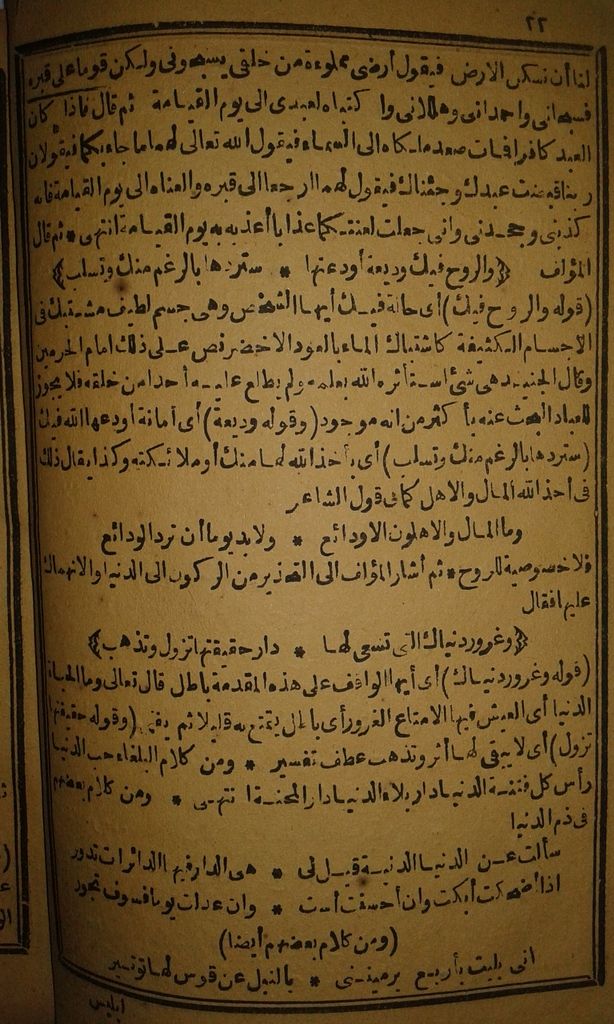 ٢٢
لنا أن نسكن الارض فيقول أرضى مملوءة من خلقى يسبحونى ولكن قوما على قبره
فسبحانى واحمدانى وهللانى واكتباه لعبدى الى يوم القيامة ثم قال فاذا كان
العبد كافرا فمات صعد ملكاه الى السماء فيقول الله تعالى لهما ما جاء بكما فيقولان
ربنا قبضت عبدك وجئناك فيقول لهما ارجعا الى قبره والعناه الى يوم القيامة فانه
كذبنى وجحدنى وانى جعلت لعنتكما عذابا أعذبه به يوم القيامة انتهى * ثم قال
المؤلف ﴿والروح فيك وديعة أودعتها * ستردها بالرغم منك وتسلب﴾
(قوله والروح فيك) أى حالة فيك أيها الشخص وهى جسم لطيف مشتبك فى
الاجسام الكثيفة كاشتباك الماء بالعود الاخضر نص على ذلك امام الحرمين
وقال الجنيد هى شئ استأثره الله بعلمه ولم يطلع عليه أحدا من خلقه فلا يجوز
للعباد البحث عنه بأكثر من انه موجود (وقوله وديعة) أى أمانة أودعها الله فيك
(ستردها بالرغم منك وتسلب) أى يأخذ الله لها منك أو ملائكته وكذا يقال ذلك
فى أخذ الله المال والاهل كما فى قول الشاعر
وما المال والاهلون الا ودائع * ولا بد يوما أن ترد الودائع
فلا خصوصية للروح * ثم أشار المؤلف الى التحذير من الركون الى الدنيا والانهماك
عليها فقال
﴿وغرور دنياك التى تسعى لها * دار حقيقتها تزول وتذهب﴾
(قوله وغرور دنياك) أى أيها الواقف على هذه المقدمة باطل قال تعالى وما الحياة
الدنيا أى العيش فيها الا متاع الغرور أى باطل يتمتع به قليلا ثم يفنى (وقوله حقيقتها
تزول) أى لا يبقى لها أثر وتذهب عطف تفسير * ومن كلام البلغاء حب الدنيا
رأس كل فتنة الدنيا دار بلاء الدنيا دار المحنة انتهى * ومن كلام بعضهم
فى ذم الدنيا
سألت عن الدنيا الدنية قيل لى * هى الدار فيها الدائرات تدور
اذا أضحكت أبكت وان أحسنت أست * وان عدلت يوما فسوف تجور
(ومن كلام بعضهم أيضا)
انى بليت بأربع يرميننى * بالنبل عن قوس لها توتير
ابليس